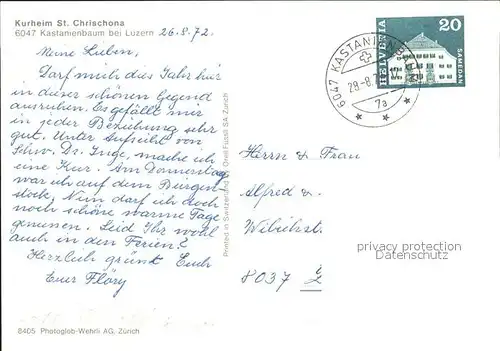 Kurheim St. Chrischona
6047 Kastanienbaum bei Luzern 26.8.72.
Meine Lieben,
Darf mich dies Jahr hier
in dieser schönen Gegend
ausruhen. Es gefällt mir
in jeder Beziehung sehr
gut. Unter Aufsicht von
Schw. Dr. Inge, mache ich
eine Kur. Am Donnerstag
war ich auf dem Bürgen-
stock. Nun darf ich doch
noch schöne warme Tage
geniessen. Seid Ihr wohl
auch in den Ferien?
Herzlich grüsst Euch
Euer Flöry
8405 Photoglob-Wehrli AG, Zürich
Printed in Switzerland Orell Füssli SA, Zürich
HELVETIA
20
SAMEDAN
6047 KASTANIENBAUM
28.-8.7
7a
Herrn & Frau
Alfred &
8037 Z
privacy protection
Datenschutz